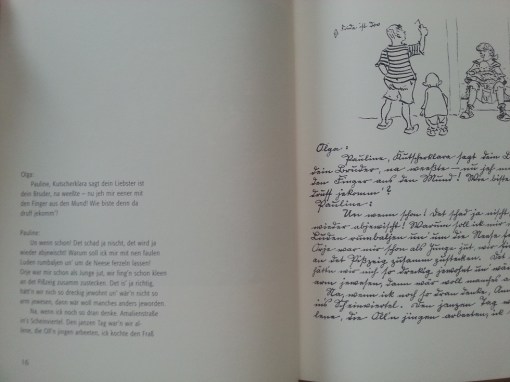 Olga:
Pauline, Kutscherklara sagt dein Liebster ist
dein Bruder, na weeßte – nu jeh mir eener mit
den Finger aus den Mund! Wie biste denn da
druff jekomm'?
Pauline:
Un wenn schon! Det schad ja nischt, det wird ja
wieder abjewischt! Warum soll ick mir mit
Luden rumbaljen un um de Neese
war mir schon als Junge jut, wie fing'n schon kleen
an der zusamm zustecken. Det is' ja richtig,
hätt'n wir noch so dreckig jewohnt un' wär'n nicht so
arm jewesen, dann wär woll manches anders jeworden.
Na, wenn ick noch so dran denke, Amalienstraße
in't Scheinviertel. Den janzen Tag war'n wir al-
leene, die Oll'n jingen arbeeten, ick kochte den Fraß
16
Olga:
Pauline, Kutscherklara sagt dein L
dein Bruder, na weeßte – nu jeh m
den Finger aus den Mund! Wie biste
druff jekomm'?
Pauline:
Un wenn schon! Det schad ja nischt
wieder abjewischt! Warum soll ick mir
Luden rumbaljen un um die Neese
war mir schon als Junge jut, wir fin
an der zusamm zustecken. Det
hätt'n wir noch so dreckig jewohnt un wär
arm jewesen, dann wär woll manches a
Na, wenn ick noch so dran denke, Am
ins Scheinviertel. Den janzen Tag w
leene, die Oll'n jingen arbeeten, ick